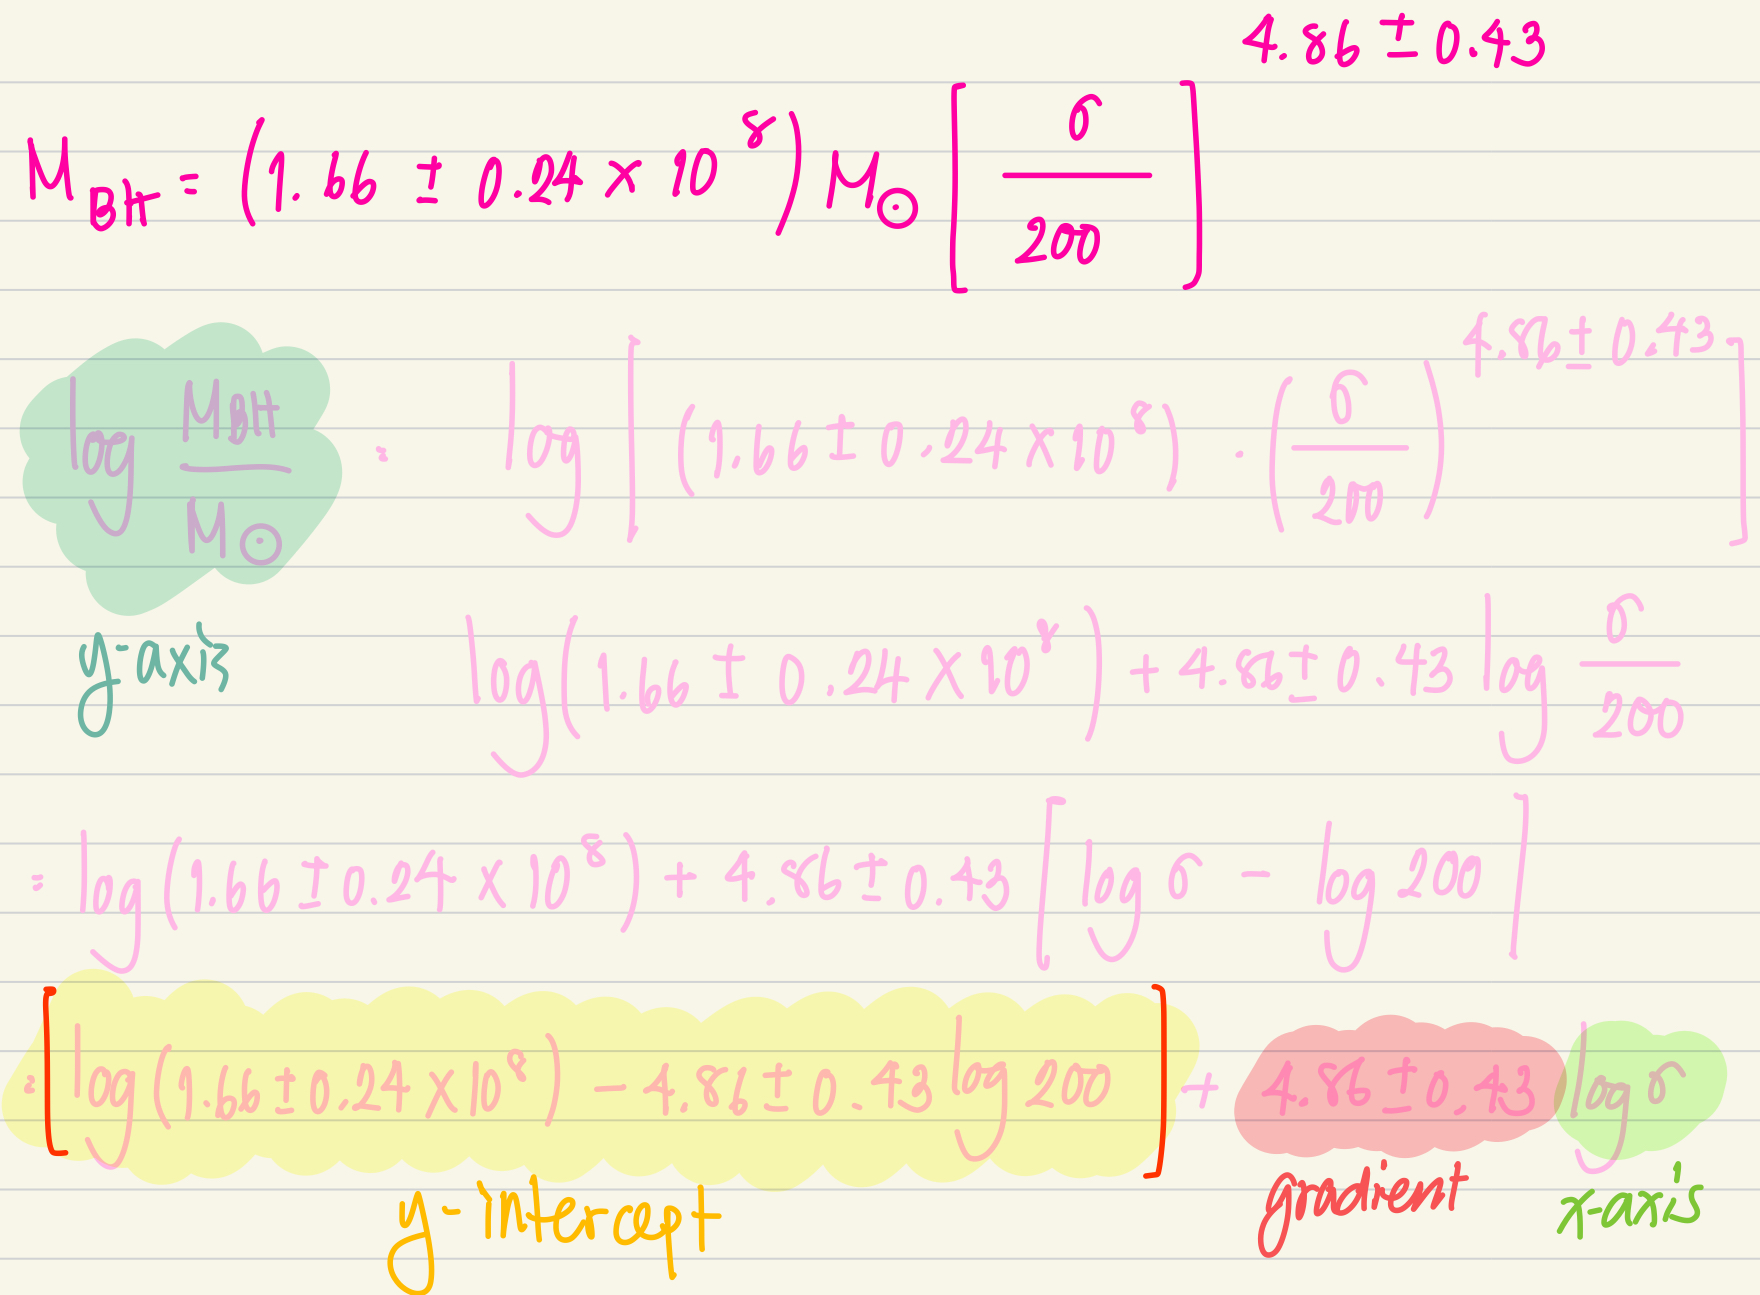 M_BH = (1.66 ± 0.24 × 10^8) M_⊙ [σ/200]^(4.86 ± 0.43)
log M_BH/M_⊙ = log [(1.66 ± 0.24 × 10^8) · (σ/200)^(4.86 ± 0.43)]
y-axis
log(1.66 ± 0.24 × 10^8) + 4.86 ± 0.43 log σ/200
= log(1.66 ± 0.24 × 10^8) + 4.86 ± 0.43 [log σ - log 200]
= [log(1.66 ± 0.24 × 10^8) - 4.86 ± 0.43 log 200] + 4.86 ± 0.43 log σ
y-intercept gradient x-axis